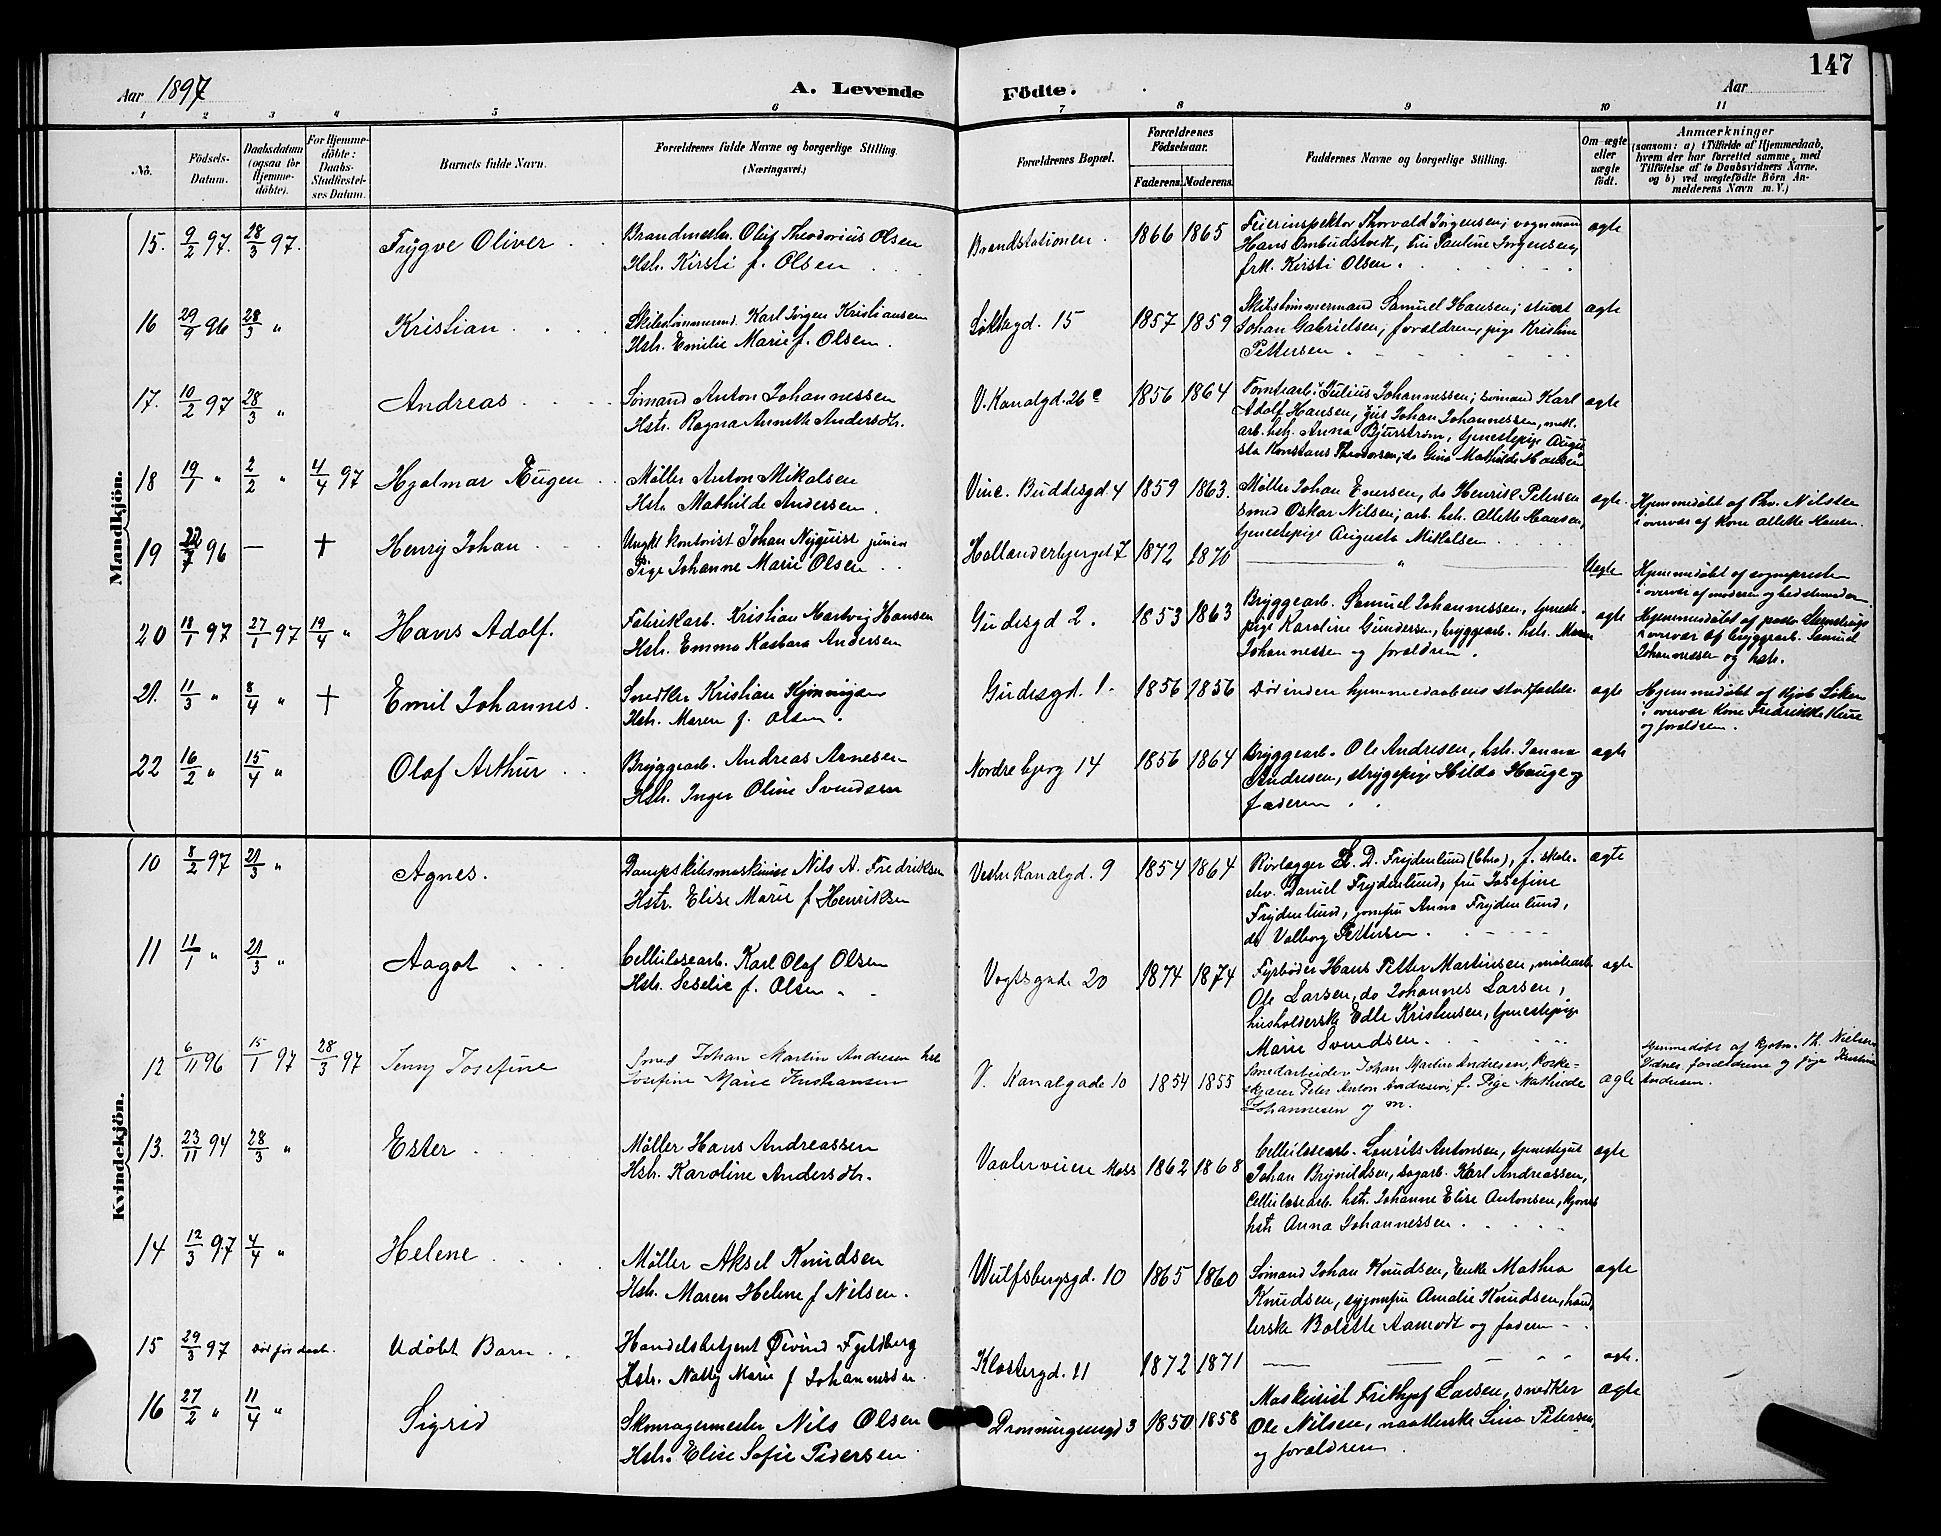 147
Aar 1897
A. Levende
Födte.
Aar
1 2 3 4 5 6 7 8 9 10 11
No.
Födsels-
Datum.
Daabsdatum
(ogsaa for
Hjemme-
döbte).
For Hjemme-
döbte:
Daabs-
Stadfæstel-
ses Datum.
Barnets fulde Navn.
Forældrenes fulde Navne og borgerlige Stilling.
(Næringsvei.)
Forældrenes Bopæl.
Forældrenes
Födselsaar.
Faderens. Moderens.
Faddernes Navne og borgerlige Stilling.
Om ægte
eller
uægte
födt.
Anmærkninger
(saasom: a) i Tilfælde af Hjemmedaab,
hvem der har forrettet samme, med
Tilföielse af to Daabsvidners Navne.
og b) ved uægtefödte Börn An-
melderens Navn m. V.)
Mandkjön.
15. 9/2 97. 28/3 97. Trygve Oliver
Brandmester. Oluf Theodorius Olsen
Hstr. Kirsti f. Olsen
Brandstationen. 1866 1865
Feierinspektør Thorvald Jørgensen; vognmand
Hans Ombudstvedt, fru Pauline Jørgensen,
frk. Kirsti Olsen.
ægte
16 29/9 96 28/3 " Kristian
Skibstømmermd. Karl Jørgen Kristiansen
Hstr. Emilie Marie f. Olsen.
15 1857 1859
Skibstømmermand Samuel Hansen; stuert
Johan Gabrielsen; forældrene, pige Kristine
Pettersen.
ægte
17. 10/2 97 28/3 " Andreas
Sømand Anton Johannessen
Hstr. Ragna Annette Andersdtr.
V. Kanalgd. 26 c 1856 1864
Tomtearb. Julius Johannessen; sømand Karl
Adolf Hansen, Johan Johannessen,
arb. hstr. Anna Bjurstrøm, tjenestepige Augu
sta Konstans Theodorsen; do Gina Mathilde Hansen
ægte
18 19/1 " 2/2 " 4/4 97 Hjalmar Eugen
Møller Anton Mikalsen
Hstr. Mathilde Andersen.
Vinc. Buddesgd 4 1859 1863.
Møller Johan Enersen, do Henrik Petersen
smed Oskar Nilsen; arb. hstr. Allette Hansen,
tjenestepige Augusta Mikalsen
ægte.
Hjemmedøbt af Thv. Nilsten
i overvær af Kone Allette Hansen.
19 22/7 96 — + Henry Johan
Ungkl kontorist Johan Nyquist junior
Pige Johanne Marie Olsen
Hollenderbjerget 7 1872 1870
"
Uægte
Hjemmedøbt af sognepresten
i overvær af moderen og bedstemoderen.
20 18/1 97 27/1 97 19/4 " Hans Adolf.
Fabrikarb. Kristian Hartvig Hansen
Hstr. Emma Kasbara Andersen
Gudesgd 2. 1853 1863
Bryggearb. Samuel Johannessen, tjeneste-
pige Karoline Gundersen, bryggearb. hstr. Maren
Johannessen og forældren.
ægte
Hjemmedøbt af pastor
i overvær af bryggearb. Samuel
Johannessen og hstr.
21. 11/3 " 8/4 " + Emil Johannes.
Snedker Kristian Hjønnigsen
Hstr. Maren f. Olsen.
Gudesgd. 1. 1856 1856
Død inden hjemmedaabens stadfæstelse.
ægte
Hjemmedøbt af Kjøb.
i overvær Kone Fredrikke
og forældren.
22 16/2 " 15/4 " Olaf Arthur
Bryggearb. Andreas Arnesen
Hstr. Inger Oline Svendsen
Nordre bjerg 14 1856 1864
Bryggearb. Ole Andresen, hstr. Janna
Andresen, strygepige Hilda Hauge og
faderen
ægte
Kvindekjön.
10 8/2 97 21/3 " Agnes.
Dampskibsmaskinist Nils A. Fredriksen
Hstr. Elise Marie f Henriksen
Vestre Kanalgd. 9 1854 1864
Rørlægger H. D. Frydenlund (Chra), f. skole-
elev. Daniel Frydenlund, fru Josefine
Frydenlund, jomfru Anna Frydenlund,
do Valborg Pettersen.
ægte
11 11/1 " 21/3 " Aagot
Cellulosearb. Karl Olaf Olsen
Hstr. Seselie f. Olsen
Vogtsgade 20 1874 1874
Fyrbøder Hans Petter Martinsen, møllearb
Ole Larsen, do Johannes Larsen,
husholderske Edle Kristensen, tjenestepige
Marie Svendsen.
ægte
12 6/11 96 15/1 97 28/3 97 Jenny Josefine
Smed Johan Martin Andresen hst
Josefine Marie Kristiansen
V. Kanalgade 10 1854 1855
Smedarbeider Johan Martin Andresen,
Peter Anton Andresen, f. Pige Mathilde
Johannesen og m.
ægte
Hjemmedøbt af Th. Nielsen
Vidner forældrene og pige Kristine
Andersen.
13. 23/11 94 28/3 " Ester
Møller Hans Andreassen
Hstr. Karoline Andersdtr.
Vaalerveien Moss 1862 1868
Cellulosearb. Laurits Antonsen, tjenestegut
Johan Brynildsen, sagarb. Karl Andreassen,
Cellulosearb. hstr. Johanne Elise Antonsen,
hstr Anna Johannessen.
ægte
14 12/3 97 4/4 " Helene
Møller Aksel Knudsen
Hstr. Maren Helene f Nilsen.
Wulfsbergsgd. 10 1865 1860
Sømand Johan Knudsen, Enke Mathea
Knudsen, syjomfru Amalie Knudsen, hand
lerske Bolette Aamodt og faderen
ægte
15 29/3 97 død før daab. Udøbt Barn
Handelsbetjent Øivind Fjeldberg
Hstr. Nally Marie f Johannessen.
Klostergd. 11 1872 1871
ægte.
16 27/2 " 11/4 " Sigrid
Skomagermester Nils Olsen
Hstr. Elise Sofie Pedersen
Dronningensgd 3 1850 1858
Maskinist Frithjof Larsen, snedker
Ole Nilsen, Lina Petersen,
og forældren.
ægte